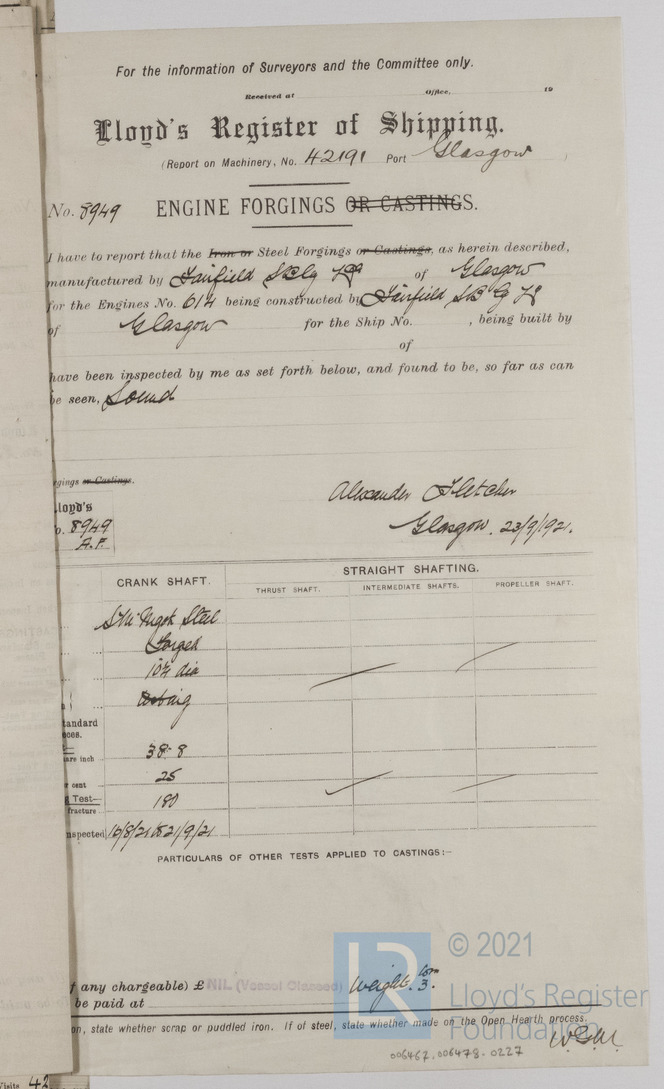 For the information of Surveyors and the Committee only.
Received at Office, 19
Lloyd's Register of Shipping.
(Report on Machinery, No. 42191 Port Glasgow )
No. 8949 ENGINE FORGINGS OR CASTINGS.
I have to report that the Iron or Steel Forgings or Castings, as herein described,
manufactured by Fairfield of Glasgow
for the Engines No. 614 being constructed by Fairfield
of Glasgow for the Ship No. , being built by
of
have been inspected by me as set forth below, and found to be, so far as can
be seen, Sound
rgings or Castings.
Alexander Fletcher
Lloyd's
o. 8949
Glasgow. 23/9/1921.
A.F.
CRANK SHAFT. STRAIGHT SHAFTING.
THRUST SHAFT. INTERMEDIATE SHAFTS. PROPELLER SHAFT.
Ingot Steel
Forged
10¾ dia
tandard
oces.
are inch 38·8
r cent 25
g Test— 180
fracture
nspected 21/9/21
PARTICULARS OF OTHER TESTS APPLIED TO CASTINGS:—
f any chargeable) £ NIL (Vessel Classed) Weight. 3. tons
be paid at
on, state whether scrap or puddled iron. If of steel, state whether made on the Open Hearth process.
© 2021
Lloyd's Register
Foundation
006467.006478.0227
Visits 42